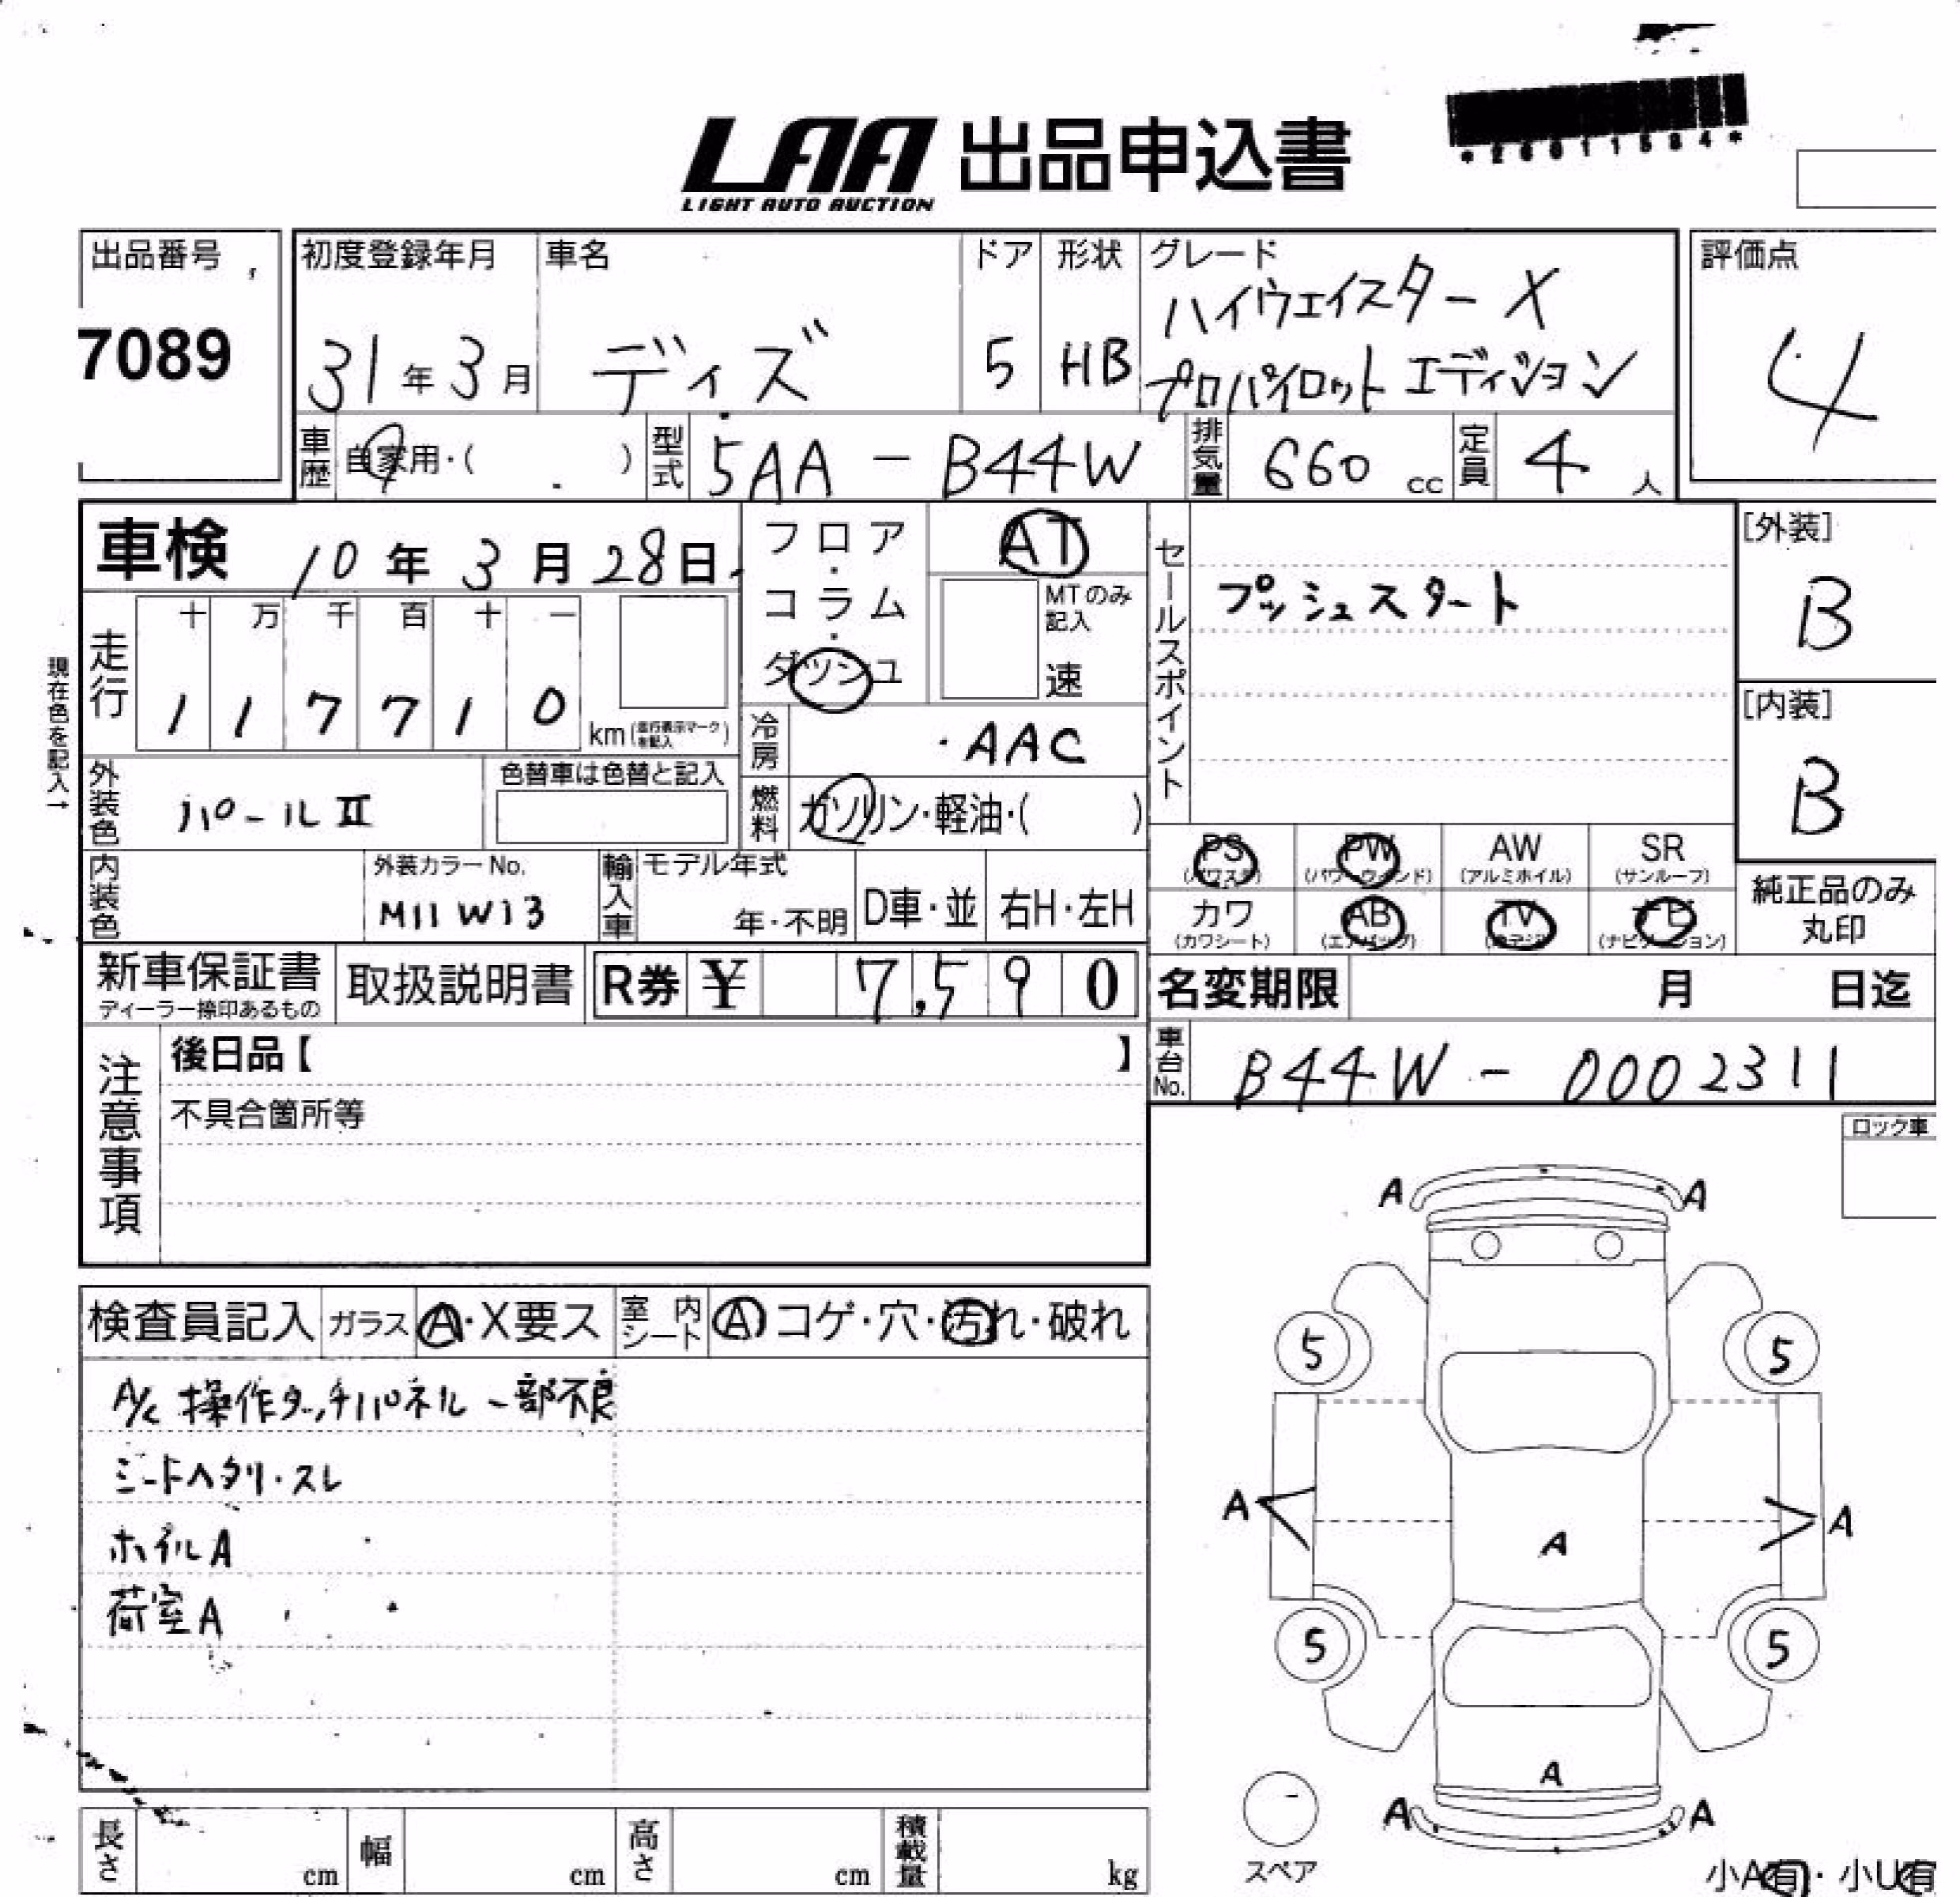 LAA 出品申込書
LIGHT AUTO AUCTION
*26011584*
出品番号
7089
初度登録年月
31年3月
車名
デイズ
ドア
5
形状
HB
グレード
ハイウェイスターX
プロパイロットエディション
評価点
4
車歴 自家用・( )
型式 5AA-B44W
排気量 660cc
定員 4人
車検 10年3月28日
フロア・コラム・ダッシュ
AT
MTのみ記入
速
走行
十 万 千 百 十 一
1 1 7 7 1 0 km
(走行表示マークを記入)
現在色を記入→
冷房 AAC
外装色 パールⅡ
色替車は色替と記入
燃料 ガソリン・軽油・( )
内装色
外装カラーNo.
M11 W13
輸入車
モデル年式
年・不明
D車・並
右H・左H
新車保証書
ディーラー捺印あるもの
取扱説明書
R券 ¥ 7,590
セールスポイント
プッシュスタート
[外装]
B
[内装]
B
PS (パワステ)
PW (パワーウィンド)
AW (アルミホイル)
SR (サンルーフ)
カワ (カワシート)
AB (エアバッグ)
TV
ナビ (ナビゲーション)
純正品のみ
丸印
名変期限 月 日迄
車台No. B44W-0002311
注意事項
後日品【 】
不具合箇所等
ロック車
検査員記入
ガラス A・X要ス
室内シート A コゲ・穴・汚れ・破れ
A/C 操作タッチパネル一部不良
シートヘタリ・スレ
ホイルA
荷室A
A A
5 5
A A A
5 5
A
A A
スペア
長さ cm
幅 cm
高さ cm
積載量 kg
小A有・小U有